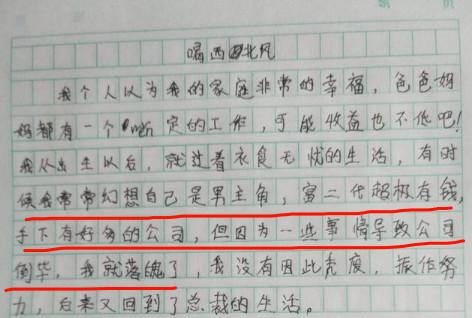 喝西北风
我个人以为我的家庭非常的幸福，爸爸妈
妈都有一个稳定的工作，可能收益也不低吧！
我从出生以后，就过着衣食无忧的生活，有时
候会常常幻想自己是男主角，富二代超极存钱，
手下有好多的公司，但因为一些事情导致公司
倒毕，我就落魄了，我没有因此秃废，振作努
力，后来又回到了总裁的生活。